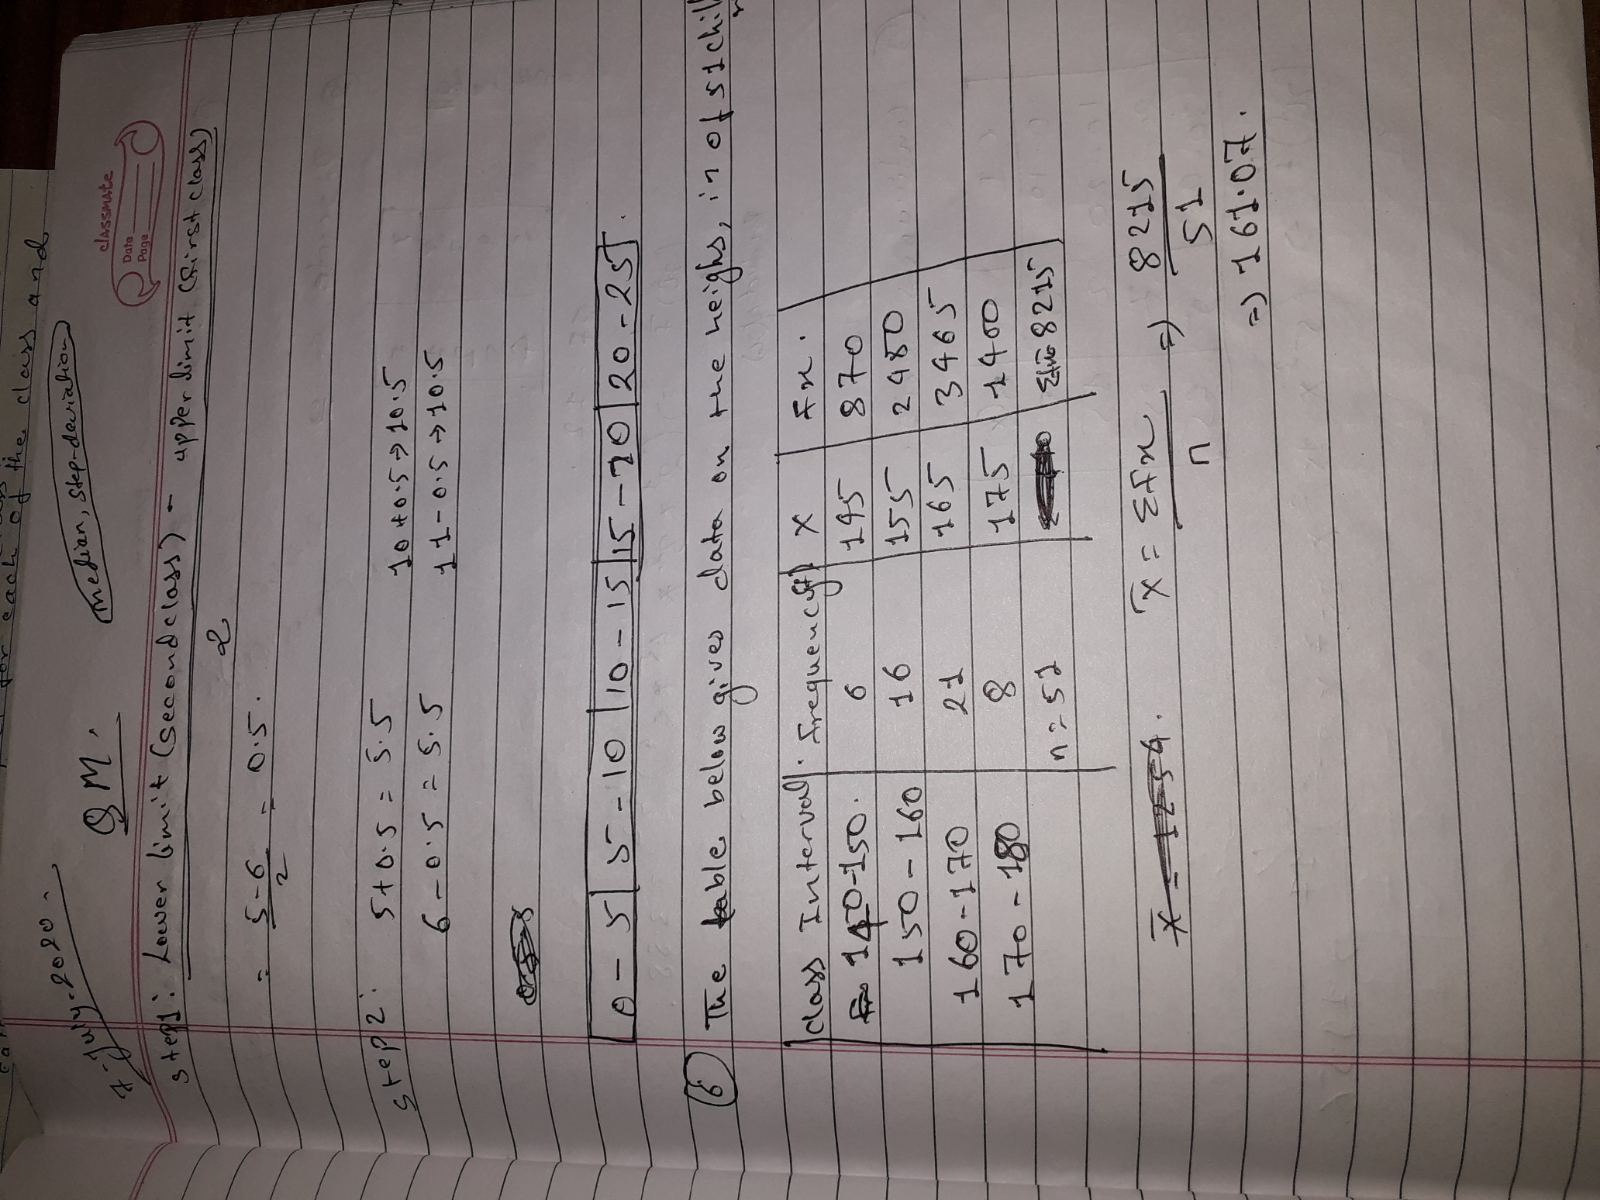 for each of the class and
classmate
Date
Page
7-July-2020. Q M. median, step-deviation
step1: Lower limit (second class) - upper limit (first class)
2
= 5-6 = 0.5.
2
step2: 5+0.5 = 5.5 10+0.5→10.5
6-0.5 = 5.5 11-0.5→10.5
0-5 5-10 10-15 15-20 20-25.
6 The table below gives data on the heighs, in of 51 chil
class Interval. frequency(f) X fx.
140-150. 6 145 870
150-160 16 155 2480
160-170 21 165 3465
170-180 8 175 1400
n=51 Σfx=8215
x̄ = Σfx => 8215
n 51
=> 161.07.